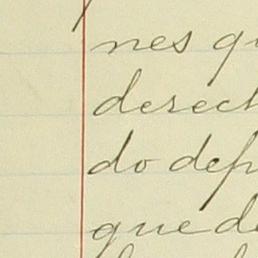 nes qu
derech
do dep
que de